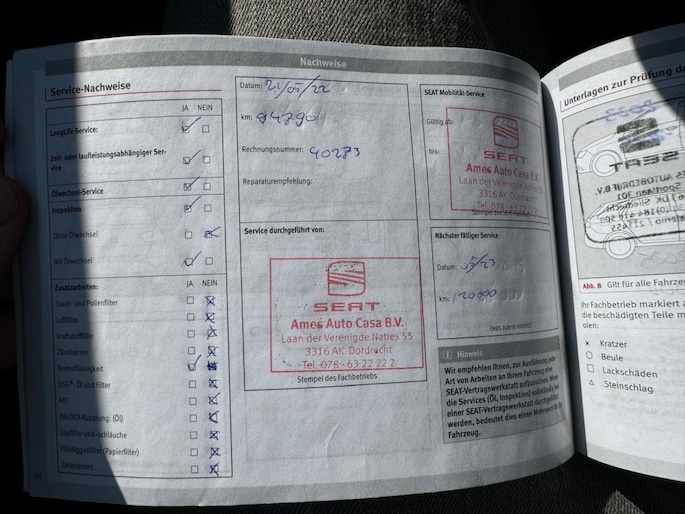 Nachweise
Service-Nachweise
JA NEIN
LongLife Service:
Zeit- oder laufleistungsabhängiger Ser-
vice
Ölwechsel-Service
Inspektion
Ohne Ölwechsel
Mit Ölwechsel
Zusatzarbeiten: JA NEIN
Staub- und Pollenfilter
Luftfilter
Kraftstofffilter
Zündkerzen
Bremsflüssigkeit
DSG®: Öl und Filter
ATF
HALDEX-Kupplung: (Öl)
Gasfilter und -schläuche
Flüssiggasfilter (Papierfilter)
Zahnriemen
Datum: 21/01/22
km: 94790
Rechnungsnummer: 40273
Reparaturempfehlung:
Service durchgeführt von:
SEAT
Ames Auto Casa B.V.
Laan der Verenigde Naties 55
3316 AK Dordrecht
Tel. 078 - 63 22 22 2
Stempel des Fachbetriebs
SEAT Mobilität-Service
Gültig ab:
bis:
SEAT
Ames Auto Casa B.V.
Laan der Verenigde Naties
3316 AK Dordrecht
Tel. 078 - 63 22
Stempel des SEAT
Nächster fälliger Service
Datum: 5/23
km: 120000
(was zuerst eintritt)
Hinweis
Wir empfehlen Ihnen, zur Ausführung jeder
Art von Arbeiten an Ihrem Fahrzeug eine
SEAT-Vertragswerkstatt aufzusuchen. Wenn
die Services (Öl, Inspektion) vollständig bei
einer SEAT-Vertragswerkstatt durchgeführt
werden, bedeutet dies einen Mehrwert für Ihr
Fahrzeug.
Unterlagen zur Prüfung de
SEAT
Abb. 8 Gilt für alle Fahrze
Ihr Fachbetrieb markiert a
die beschädigten Teile m
olen:
x Kratzer
Beule
Lackschäden
Steinschlag